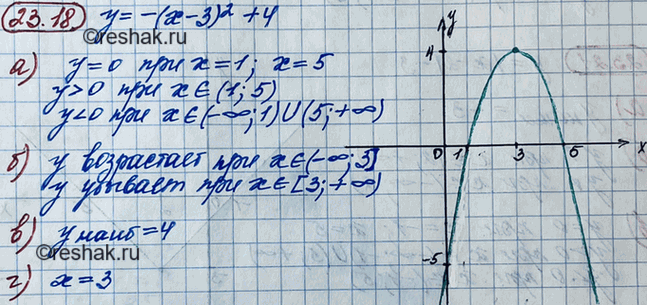 23.18 y = -(x-3)² + 4
©reshak.ru
а) y=0 при x=1; x=5
y>0 при x∈(1; 5)
y<0 при x∈(-∞;1)∪(5;+∞)
б) y возрастает при x∈(-∞;3]
y убывает при x∈[3;+∞)
в) y наиб=4
©reshak.ru
г) x=3
y
4
0 1 3 5 x
-5
©reshak.ru